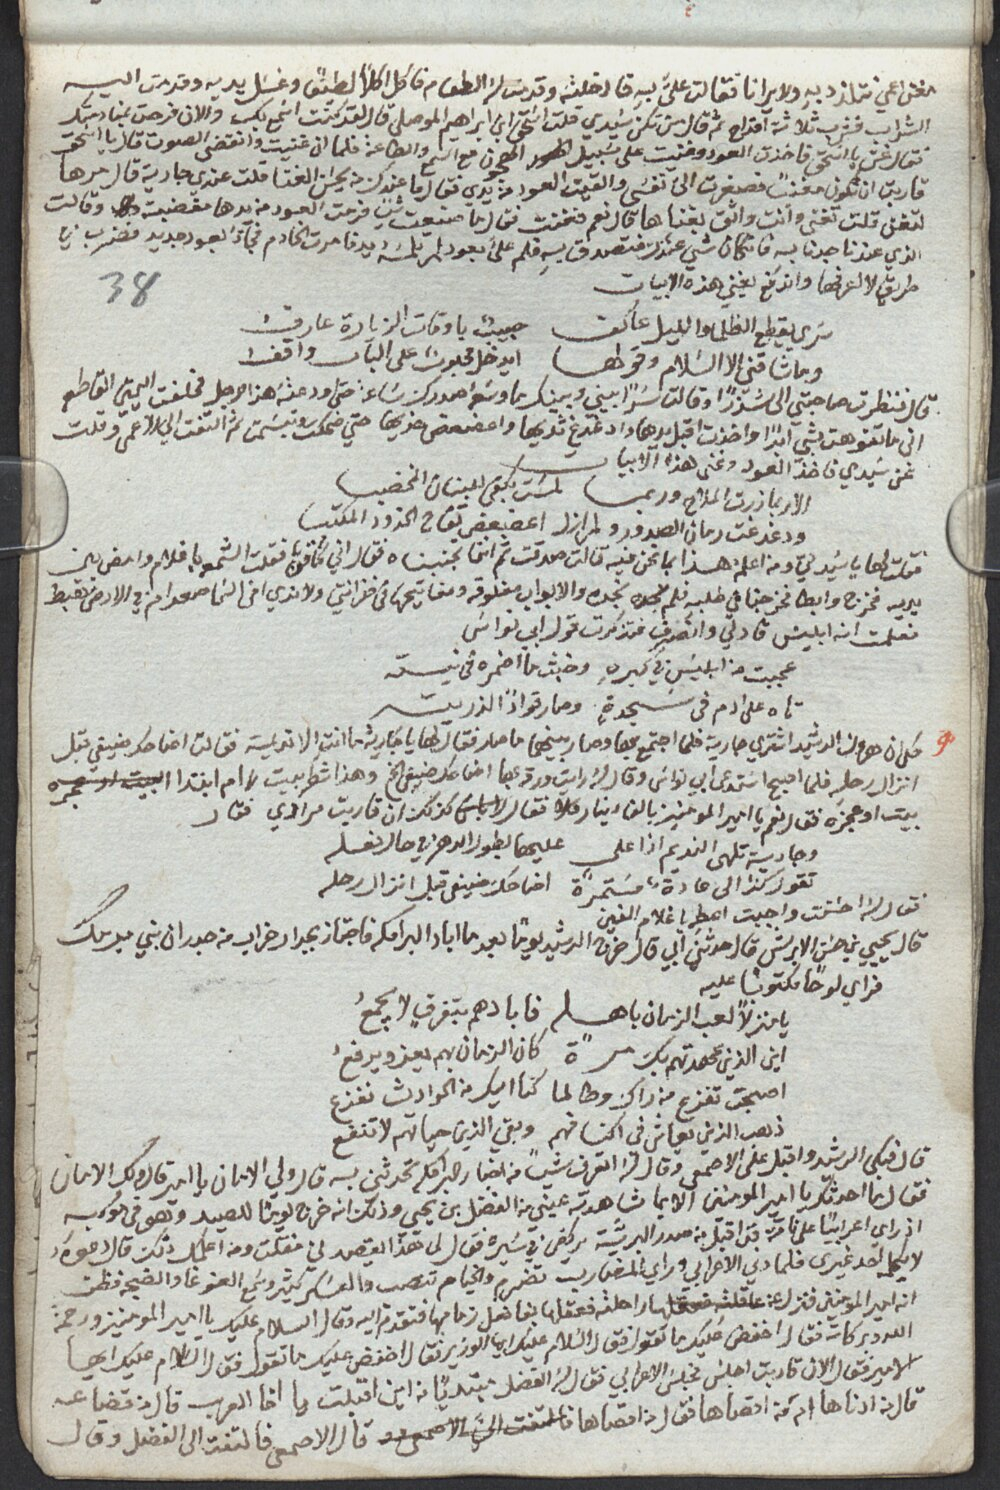 مغنى اعمى نتلذذ به ولا يرانا فقالت علىّ به قال فدخلته وقدمت له الطعام فاكل اكلاً لطيفًا وغسل يديه وقدمت اليه
الشراب فشرب ثلاثة اقداح ثم قال من تكن سيدي قلت اسحق ابن ابراهيم الموصلي قال لقد كنت اسمع بك والان فرحت بمنادمتك
فقال غن يا اسحق فاخذت العود وغنيت على سبيل المجون مع السمع والطاعة فلما ان غنيت وانقضى الصوت قال يا اسحق
قاربت ان تكون مغنيًا فصغرت اليّ نفسي والقيت العود من يدي فقال اما عندك من يحسن الغنا قلت عندي جارية قال مرها
لتغنى قلت تغنى وانت واثق بغناها قال نعم فغنت فقال ما صنعت شيا فرمت العود من يدها مغضبة وقالت
الذي عندنا جدنا به فان كان شي عندك فتصدق به علينا فقال علىّ بعود لم تلمسه يد فامرت الخادم فجاء بعود جديد فضرب في
طريق لا اعرفها واندفع يغني هذه الابيات
38
سرى يقطع الظلما والليل عاكف حبيب باوقات الزيارة عارف
وما شاقني الا السلام وقولها ايدخل محبوب على الباب واقف
قال فنظرت صاحبتي الي شذرًا وقالت سرًا بيني وبينك ما وسعه صدرك ساعة حتى اودعته هذا الرجل فحلفت اليمين القاطع
اني ما تفوهت بشي ابدًا واخذت اقبل يدها وادغدغ ثديها واعضعض خديها حتى ضحكت وتبسمت ثم التفت الى الاعمى وقلت
غن سيدي فاخذ العود وغنى هذه الابيات
الا ربما زرت الملاح وربما لمست بكفي البنان المخضبا
ودغدغت رمان الصدور ولم ازل اعضعض تفاح الخدود المكتبا
فقلت لها يا سيدتي ومن اعلمه هذا بما نحن فيه قالت صدقت ثم اننا تجنبناه فقال اني حاقن فقلت الشمعه يا غلام وامض بين
يديه فخرج وابطا فخرجنا في طلبه فلم نجده والابواب مغلوقه ومفاتيحها في خزانتي ولا ندري افى السما صعد ام في الارض هبط
فعلمت انه ابليس قاد لي وانصرف فتذكرت قول ابي نواس
عجبت من ابليس في كبره وخبث ما اضمره في نيته
تاه على ادم في سجدة وصار قوادًا لذريته
حكى ان هرون الرشيد اشترى جارية فلما اجتمع بها وصار بينهما ما صار فقال لها يا جارية ما انت الا نديسه فقالت اضاحك ضيفي قبل
انزال رحله فلما اصبح استدعى ابي نواس وقال له رايت ورقة بها اضاحك ضيفي الخ وهذا شطر بيت لا ام ابتدا
بيت او عجزه فقال نعم يا امير المومنين بالف دينار فقال لاباس كذلك ان قاربت مرادي فقال
وجارية تلهي النديم اذا على عليها بطول الدهر في حال نعله
تقول كذا لي عادة مستمرة اضاحك ضيفي قبل انزال رحله
فقال له احسنت واجبت اعطه يا غلام الفين
قال يحيى بن حسن الابرش قال حدثني ابي قال خرج الرشيد يومًا بعد ما اباد البرامكه فاجتاز بجدار خراب من جدران بني برمك
فراى لوحًا مكتوبًا عليه
يا منزلاً لعب الزمان باهله فابادهم بتفرق لا يجمعُ
اين الذين عهدتهم بك مرةً كان الزمان بهم يعز ويرفعُ
اصبحت تفزع من راك وطالما كنا اليك من الحوادث نفزع
ذهب الذين يعاش في اكنافهم وبقي الذين حياتهم لا تنفع
قال فبكى الرشيد واقبل على الاصمعي وقال له اتعرف شيئًا من اخبار البرامكه تحدثني به قال ولي الامان يا امير قال ولك الامان
فقال بما احدثك يا امير المومنين الا بما شاهدته عيني من الفضل بن يحيى وذلك انه خرج يومًا للصيد وهو في موكبه
اذ راى اعرابيًا على ناقة قد اقبل من صدر البرية يركض في سيره فقال لي هذا يقصدني فقلت ومن اعلمك ذلك قال دعوه
لا يكلمه احد غيرى فلما دنى الاعرابي وراى المضارب تضرب والخيام تنصب والعسكر كثير وسمع الغوغا والضجه فظن
انه امير المومنين فنزل عن راحلته فعقلها بفاضل زمامها فتقدم اليه وقال السلام عليك يا امير المومنين ورحمة
الله وبركاته فقال اخفض عليك ما تقول فقال السلام عليك ايها الوزير فقال اخفض عليك ما تقول فقال السلام عليك ايها
الامير فقال الان قاربت اجلس فجلس الاعرابي فقال له الفضل مبتديًا من اين اقبلت يا اخا العرب قال من قضاعه
قال من ادناها ام من اقصاها فقال من اقصاها قال الاصمعي فالتفت الى الفضل وقال